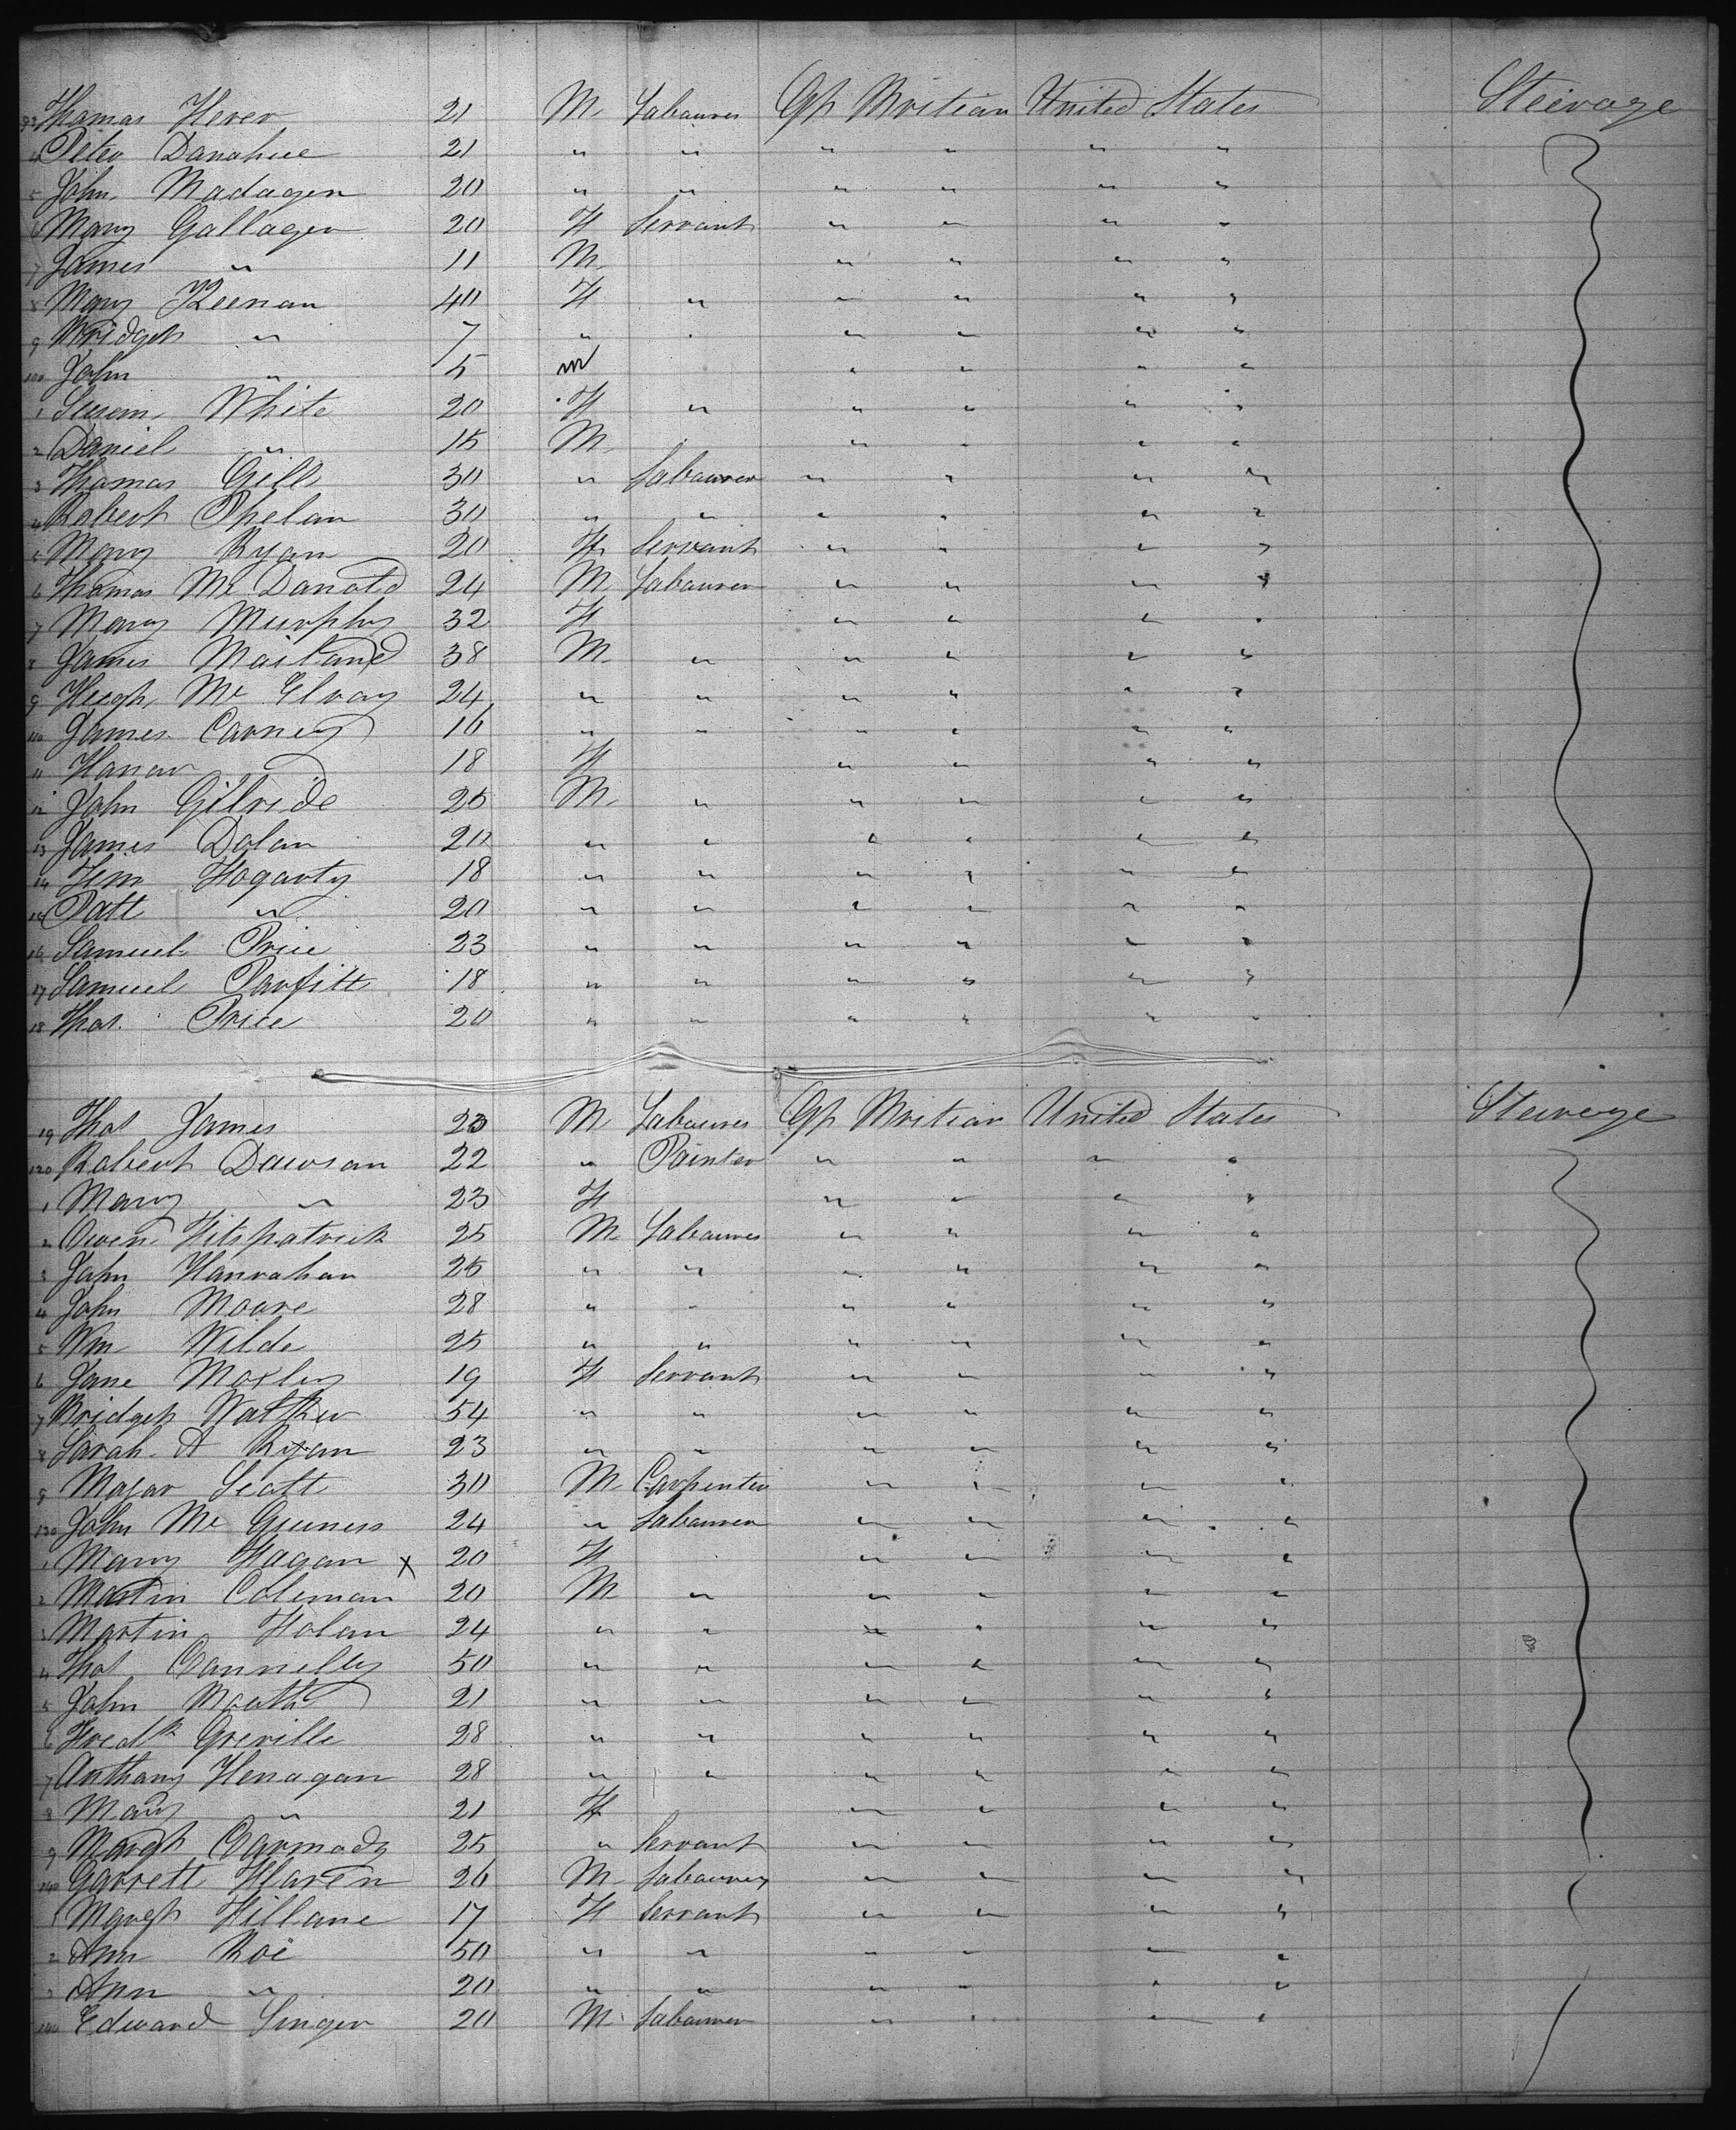 93 Thomas Herer 21 M Labourer Gt Britian United States Steirage
4 Peter Donohue 21 " " " " " "
5 John Madagen 20 " " " " " "
6 Mary Gallager 20 F Servant " " " "
7 James " 11 M " " " "
8 Mary Keenan 40 F " " " " "
9 Bridget " 7 " " " " " "
100 John " 5 m " " " "
1 Susan White 20 F " " " " "
2 Daniel " 15 M " " " "
3 Thomas Gill 30 " Labourer " " " "
4 Robert Phelan 30 " " " " " "
5 Mary Ryan 20 F Servant " " " "
6 Thomas Mc Donald 24 M Labourer " " " "
7 Mary Murphy 32 F " " " "
8 James Maitand 38 M " " " " "
9 Hugh Mc Elvay 24 " " " " " "
110 James Carney 16 " " " " " "
11 Hanar 18 F " " " "
12 John Gilride 25 M " " " " "
13 James Dolan 20 " " " " " "
14 Jim Hogarty 18 " " " " " "
15 Patt " 20 " " " " " "
16 Samuel Price 23 " " " " " "
17 Samuel Parfitt 18 " " " " " "
18 Thos. Price 20 " " " " " "
19 Thos James 23 M Labourer Gt Britian United States Steirage
120 Robert Dawson 22 " Painter " " " "
1 Mary " 23 F " " " "
2 Owen Fitspatrick 25 M Labourer " " " "
3 John Hanrahan 25 " " " " " "
4 John Moore 28 " " " " " "
5 Wm Wilde 25 " " " " " "
6 Jane Moxley 19 F Servant " " " "
7 Bridget Walker 54 " " " " " "
8 Sarah A Ryan 23 " " " " " "
9 Major Scott 30 M Carpenter " " " "
130 John Mc Guness 24 " Labourer " " " "
1 Mary Hagan x 20 F " " " "
2 Martin Coleman 20 M " " " " "
3 Martin Holan 24 " " " " " "
4 Thos Connelly 50 " " " " " "
5 John Meath 21 " " " " " "
6 Fredk Greville 28 " " " " " "
7 Anthony Henagan 28 " " " " " "
8 Mary " 21 F " " " "
9 Margt Carmody 25 " Servant " " " "
140 Garrett Haren 26 M Labourer " " " "
1 Margt Killane 17 F Servant " " " "
2 Ann Roe 50 " " " " " "
3 Ann " 20 " " " " " "
144 Edward Singer 20 M Labourer " " " "